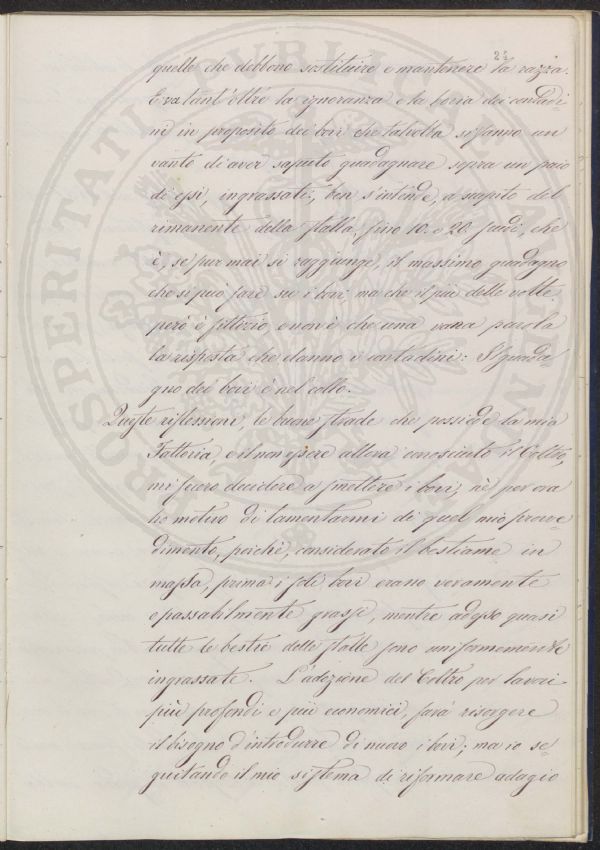 23
quelle che debbono sostituire e mantenere la razza.
E va tant'oltre la ignoranza e la boria dei contadi=
ni in proposito dei bovi che talvolta si fanno un
vanto di aver saputo guadagnare sopra un paio
di essi, ingrassati, ben s'intende, a scapito del
rimanente della stalla, fino 10. o 20. scudi, che
è, se pur mai si raggiunge, il massimo guadagno
che si può fare su i bovi, ma che il più delle volte
però è fittizio, e non è che una vana parola
la risposta che danno i contadini: Il guada=
gno dei bovi è nel collo.
Queste riflessioni, le buone strade che possiede la mia
Fattoria, e il non essere allora conosciuto il Coltro,
mi fecero decidere a smettere i bovi; nè per ora
ho motivo di lamentarmi di quel mio provve=
dimento, poichè, considerato il bestiame in
massa, prima i soli bovi erano veramente
e passabilmente grassi, mentre adesso quasi
tutte le bestie delle stalle sono uniformemente
ingrassate. L'adozione del Coltro per lavori
più profondi e più economici, farà risorgere
il bisogno d'introdurre di nuovo i bovi; ma io se=
guitando il mio sistema di riformare adagio
PROSPERITATI PUBLICAE AUGENDAE